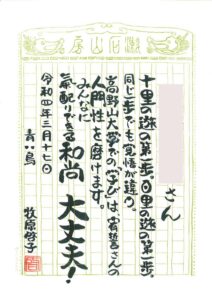 漱石山房
さん
十里の逊の第一歩、百里の逊の第一歩、
同じ一歩でも覚悟が違う。
高野山大学での「学び」は、宥誓さんの
人間性を磨けます。
みんなに
気配りできる和尚 大丈夫!
令和四年三月十七日
青い鳥
牧原修子